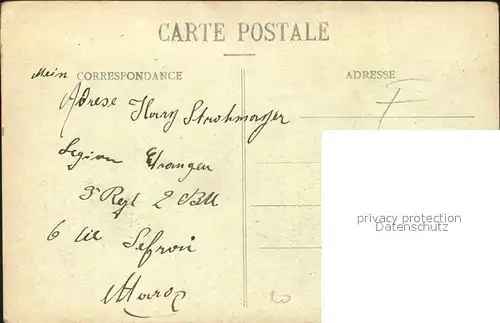 CARTE POSTALE
CORRESPONDANCE
ADRESSE
Mein
Adrese Harry Strohmayer
Legion Etranger
3 Regt 2 Btl
6 Cie Sefrou
Maroc
privacy protection
Datenschutz